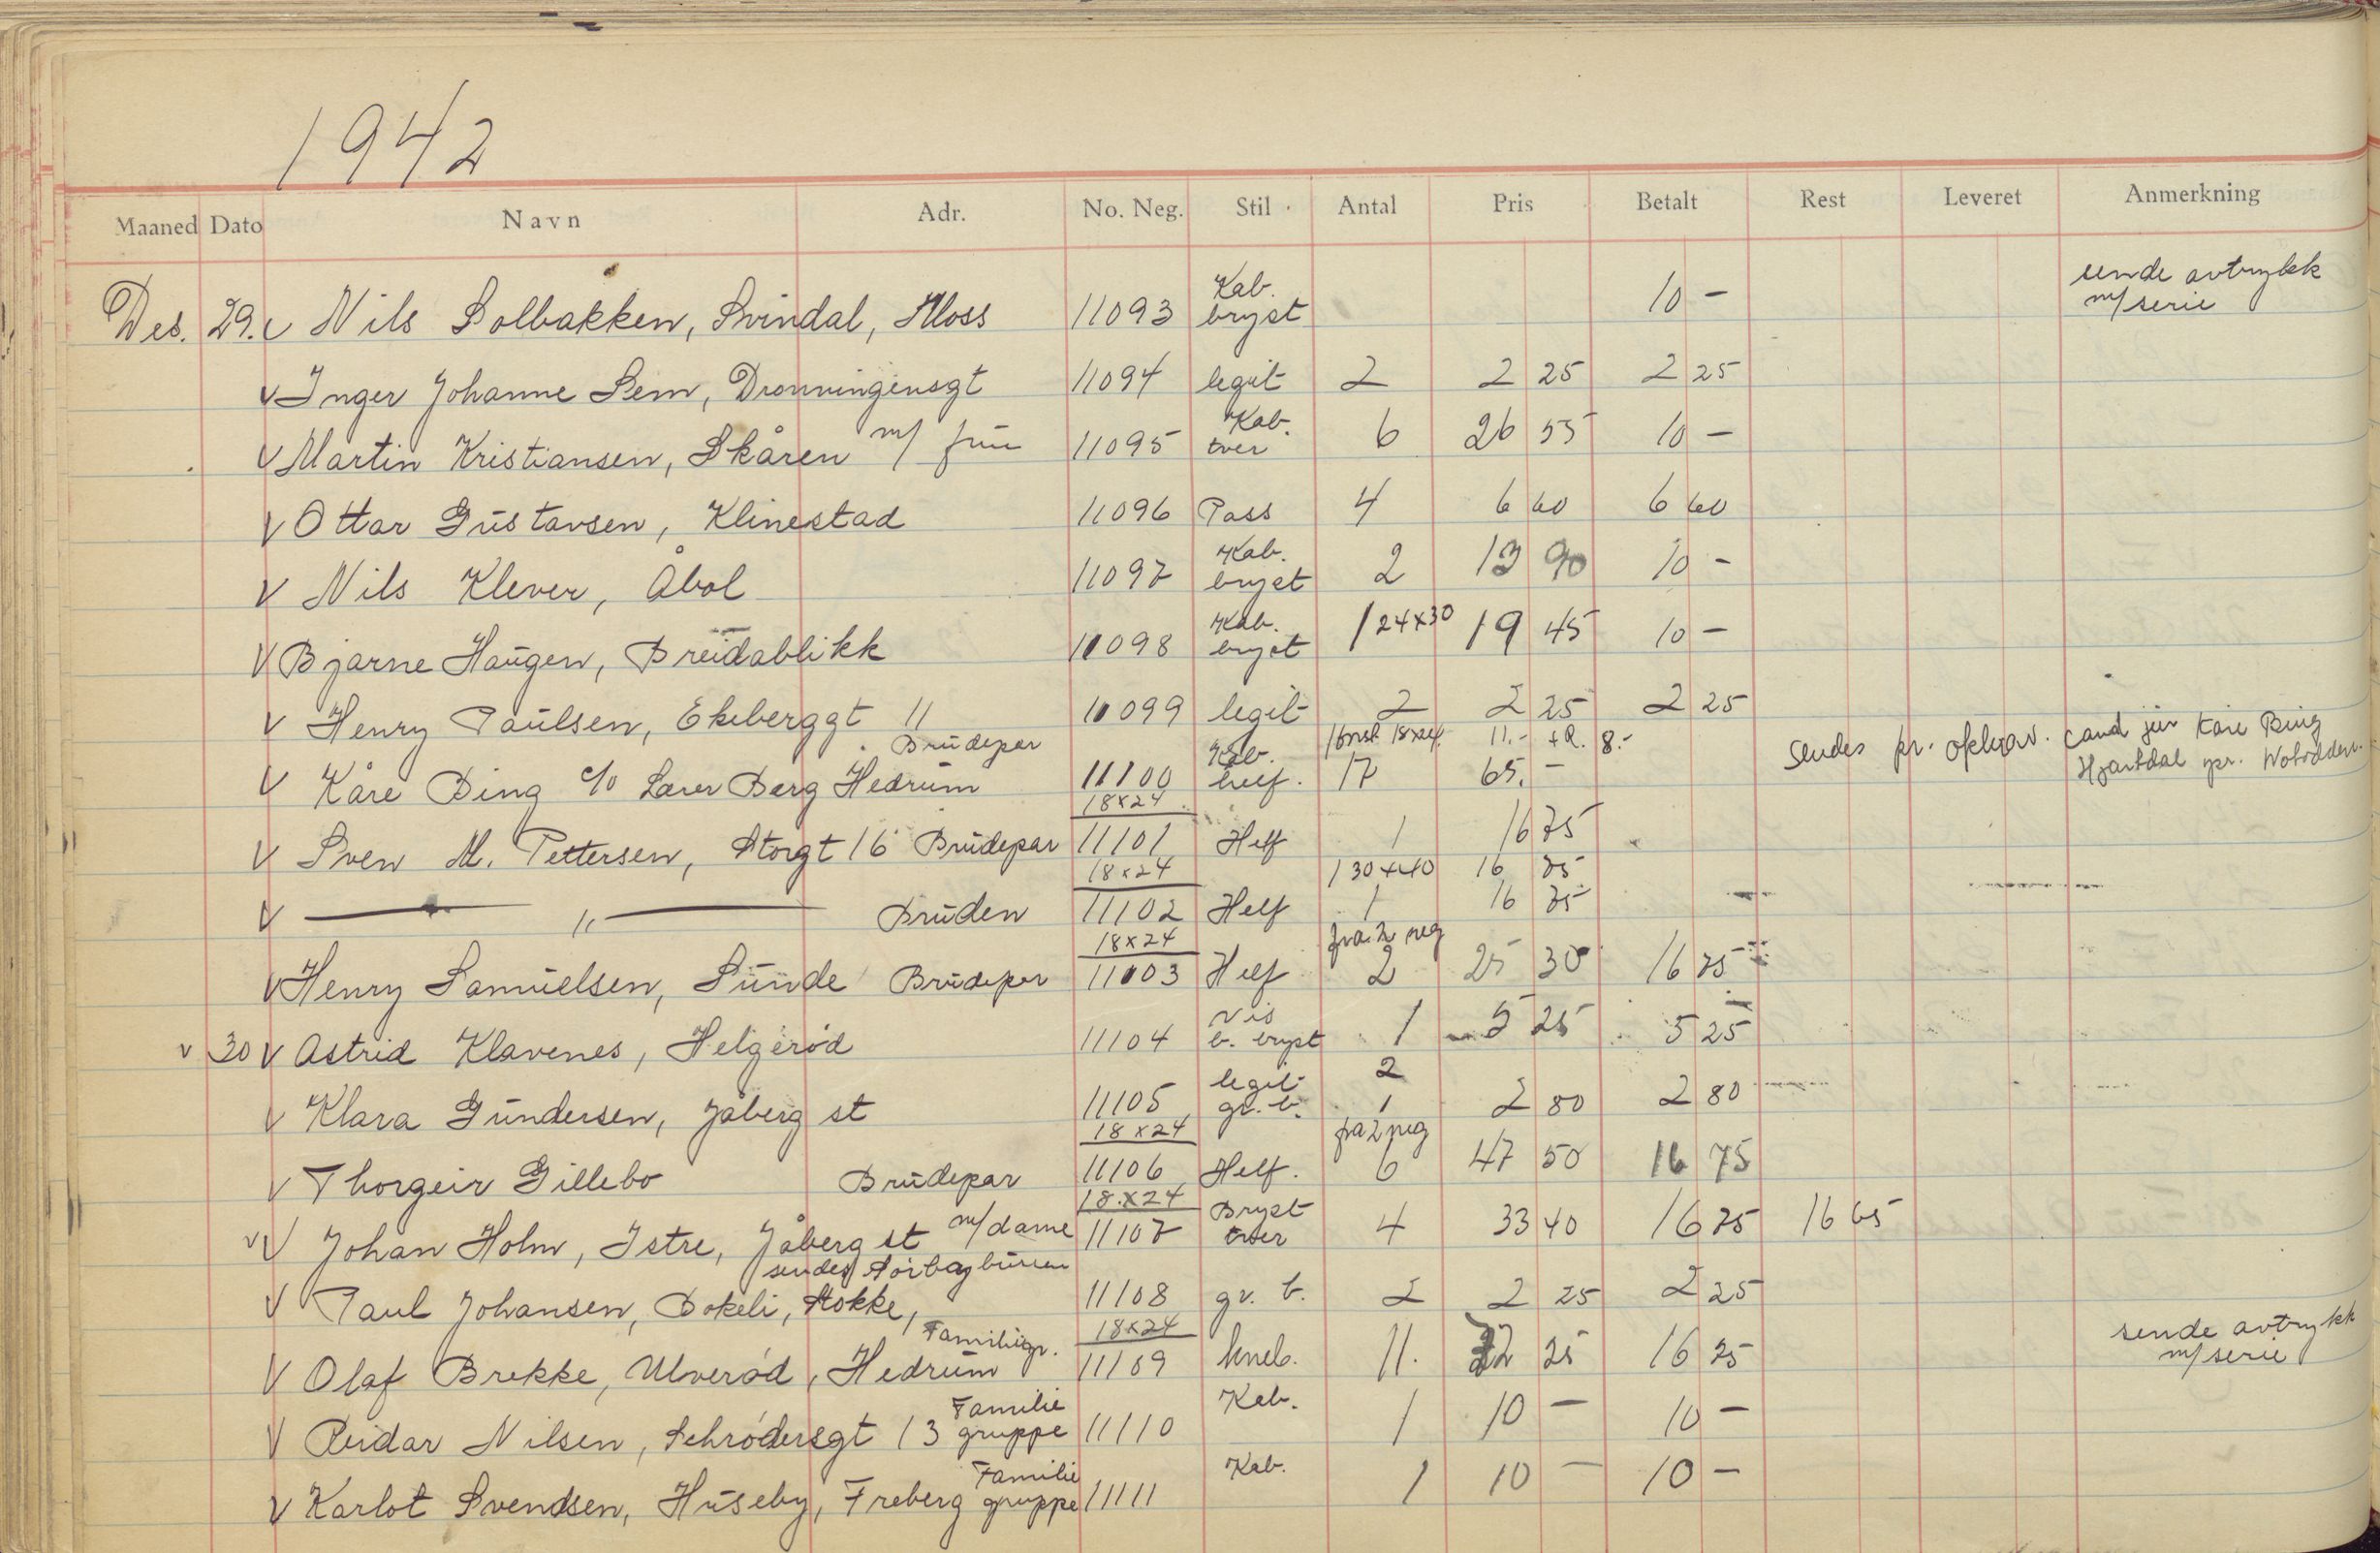 1942
Maaned Dato Navn Adr. No. Neg. Stil Antal Pris Betalt Rest Leveret Anmerkning
Des. 29. v Nils Solbakken, Svindal, Moss 11093 Kab. bryst 10 - sende avtrykk m/serie
v Inger Johanne Sem, Dronningensgt 11094 legit 2 2 25 2 25
v Martin Kristiansen, Skåren m/ frue 11095 Kab. tver 6 26 55 10 -
v Ottar Gustavsen, Klinestad 11096 Pass 4 6 60 6 60
v Nils Klever, Åbol 11097 Kab. bryst 2 13 90 10 -
v Bjarne Haugen, Breidablikk 11098 Kab. bryst 1 24x30 19 45 10 -
v Henry Paulsen, Ekeberggt 11 11099 legit 2 2 25 2 25
v Kåre Bing c/o Lærer Berg Hedrum Brudepar 11100 Kab. helf. 17 65. - 18x24 11.- + R. 8.- Sendes pr. opkrav. cand jur Kåre Bing Hjartdal pr. Notodden.
v Sven M. Pettersen, Storgt 16 Brudepar 18x24 11101 Helf 1 16 75
v — " — Bruden 18x24 11102 Helf 1 30x40 16 75 1 16 75
v Henry Samuelsen, Sunde Brudepar 18x24 11103 Helf fra 2 neg 2 25 30 16 75
v 30 v Astrid Klavenes, Helgerød 11104 vis b. bryst 1 5 25 5 25
v Klara Gundersen, Jåberg st 11105 legit gr. b. 2 1 2 80 2 80
v Thorgeir Gillebo Brudepar 18x24 11106 Helf. fra 2 neg 6 47 50 16 75
v v Johan Holm, Istre, Jåberg st m/dame 18x24 11107 Bryst tver 4 33 40 16 75 16 65
v Paul Johansen, Bokeli, Stokke, sendes 11108 gr. b. 2 2 25 2 25
v Olaf Brekke, Ulverød, Hedrum Familiegr. 18x24 11109 kneb. 11. 32 25 16 25 sende avtrykk m/serie
v Reidar Nilsen, Schrødersgt 13 Familie gruppe 11110 Kab. 1 10 - 10 -
v Karlot Svendsen, Huseby, Freberg Familie gruppe 11111 Kab. 1 10 - 10 -